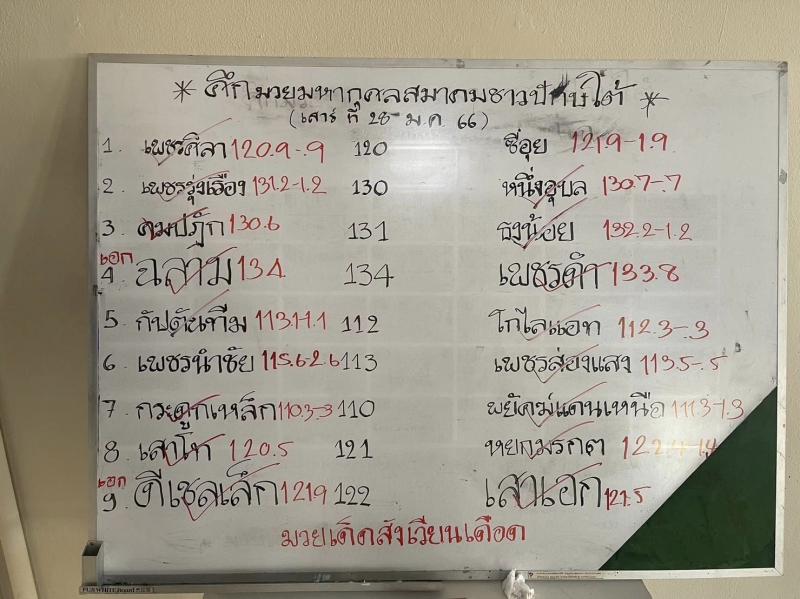 * ศึกมวยมหากุศลสมาคมชาวปักษ์ใต้ *
(เสาร์ ที่ 28 ม.ค 66)
1. เพชรศิลา 120.9-.9 120 ซีอุย 121.9-1.9
2. เพชรรุ่งเรือง 131.2-1.2 130 หนึ่งอุบล 130.7-.7
3. คมปฏัก 130.6 131 ธงน้อย 132.2-1.2
เอก
4 ฉลาม 134 134 เพชรดำ 133.8
5. กัปตันทีม 113.1-1.1 112 โกไลแอท 112.3-.3
6. เพชรนำชัย 115.6-2.6 113 เพชรส่องแสง 113.5-.5
7. กระดูกเหล็ก 110.3-.3 110 พยัคฆ์แดนเหนือ 111.3-1.3
8. เสาโท 120.5 121 หยกมรกต 122.4-1.4
เอก
9. ดีเซลเล็ก 121.9 122 เสาเอก 121.5
มวยเด็ดสังเวียนเดือด